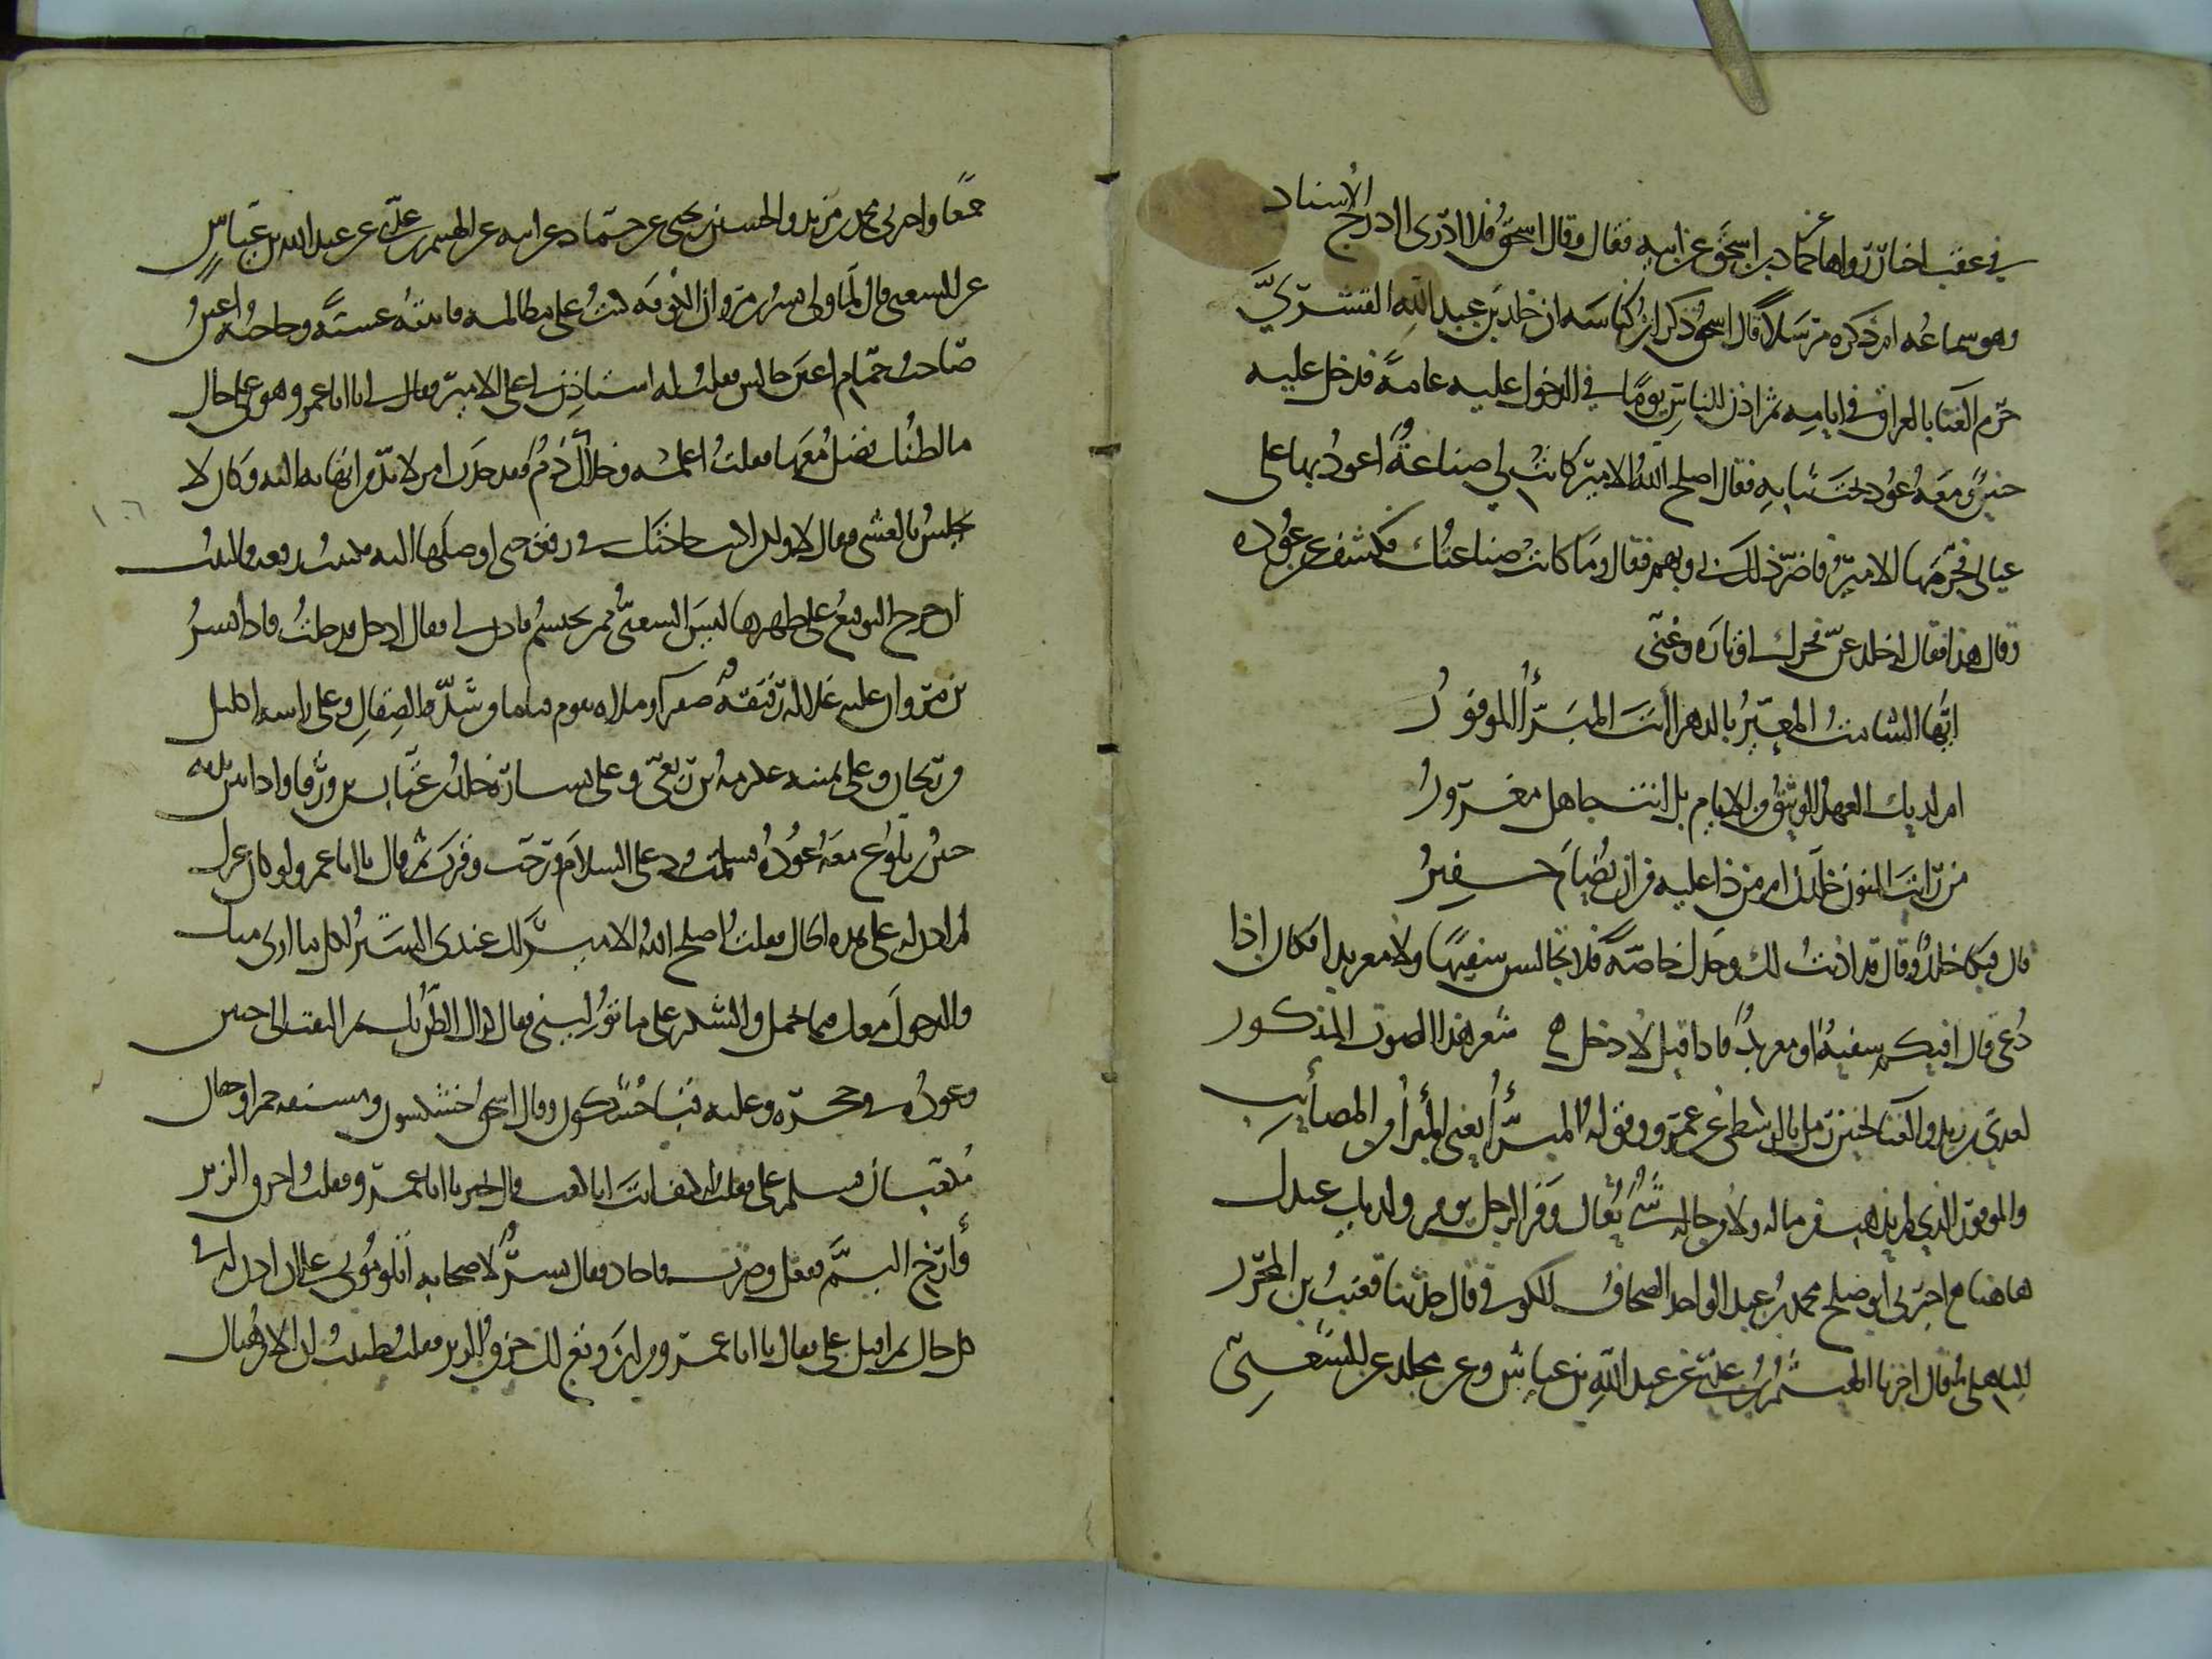 في عقب اخبار رواها عن حماد بن اسحق عن ابيه فقال وقال اسحق فلا ادري ادرج الاسناد
وهو سماعه ام ذكره مرسلا قال اسحق وذكر ابن كناسه ان خلد بن عبد الله القسري
حرم الغنا بالعراق في ايامه ثم اذن للناس يوما في الدخول عليه عامة فدخل عليه
حنين ومعه عود تحت ثيابه فقال اصلح الله الامير كانت لي صناعة اعود بها على
عيالي فحرمها الامير فاضر ذلك بي وبهم فقال وما كانت صناعتك فكشف عن عوده
وقال هذا فقال له خلد غن فحرك اوتاره وغنى
ايها الشامت المعير بالدهر أأنت المبرأ الموفور
ام لديك العهد الوثيق من الايام بل انت جاهل مغرور
من رايت المنون خلدن ام من ذا عليه من ان يضام خفير
قال فبكا خلد وقال قد اذنت لك وحدك خاصة فلا تجالس سفيها ولا معربدا فكان اذا
دعي قال افيكم سفيه او معربد فاذا قيل لا دخل ه شعر هذا الصوت المذكور
لعدي بن زيد والغنا لحنين رمل بالوسطى عن عمرو وقوله المبرأ يعني المبرأ من المصائب
والموفور الذي لم يذهب من ماله ولا من حاله شي يقال وفر الرجل يوفر ولديك عندك
هاهنا اخبرني ابو صلح محمد بن عبد الواحد الصحاف الكوفي قال حدثنا قعنب بن المحرر
الباهلي قال اخبرنا الهيثم بن عدي عن عبد الله بن عياش وعن مجالد عن الشعبي
جمعا واخبرني محمد بن مزيد والحسين بن يحيى عن حماد عن ابيه عن الهيثم بن عدي عن عبد الله بن عياش
عن الشعبي قال لما ولي بشر بن مروان الكوفه كنت على مظالمه فاتيته عشية وحاجبه اعين
صاحب حمام اعين جالس فقلت له استاذن لي على الامير فقال لي يا ابا عمرو هو على حال
ما اظنك تصل معها فقلت اعلمه وخلاك ذم فقد حدث امر لا بد من انهايه اليه وكان لا
يجلس بالعشي فقال لا ولكن اكتب حاجتك في رقعة حتى اوصلها اليه فكتبت رقعة فما لبثت
ان خرج التوقيع على ظهرها ليس الشعبي ممن يحتشم فاذن له فقال ادخل فدخلت فاذا بشر
بن مروان عليه غلالة رقيقة صفرا وملاه تقوم قياما من شدة الصقال وعلى راسه اكليل
من ريحان وعلى يمينه عكرمة بن ربعي وعلى يساره خلد بن عتاب بن ورقا واذا بين يديه
حنين بن بلوع معه عوده فسلمت فرد علي السلام ورحب وقرب ثم قال يا ابا عمرو لو كان غيرك
لم اذن له على هذه الحال فقلت اصلح الله الامير لك عندي الستر لكل ما ارى منك
والدخول معك فيما يجمل والشكر على ما توليني فقال كذاك الظن بك ثم التفت الى حنين
وعوده في حجره وعليه قبا خشكون وقال اسحق خشكسون ومستقه حمرا وخفان
مكعبان فسلم علي فقلت له كيف انت ابا كعب قال بخير يا ابا عمرو فقلت احزق الزير
وأرخ البم ففعل وضرب فاجاد فقال بشر لاصحابه اتلومونني على ان اذن له في
كل حال ثم اقبل علي فقال يا ابا عمرو من اين وقع لك حزق الزير فقلت ظننت ان الامر هناك